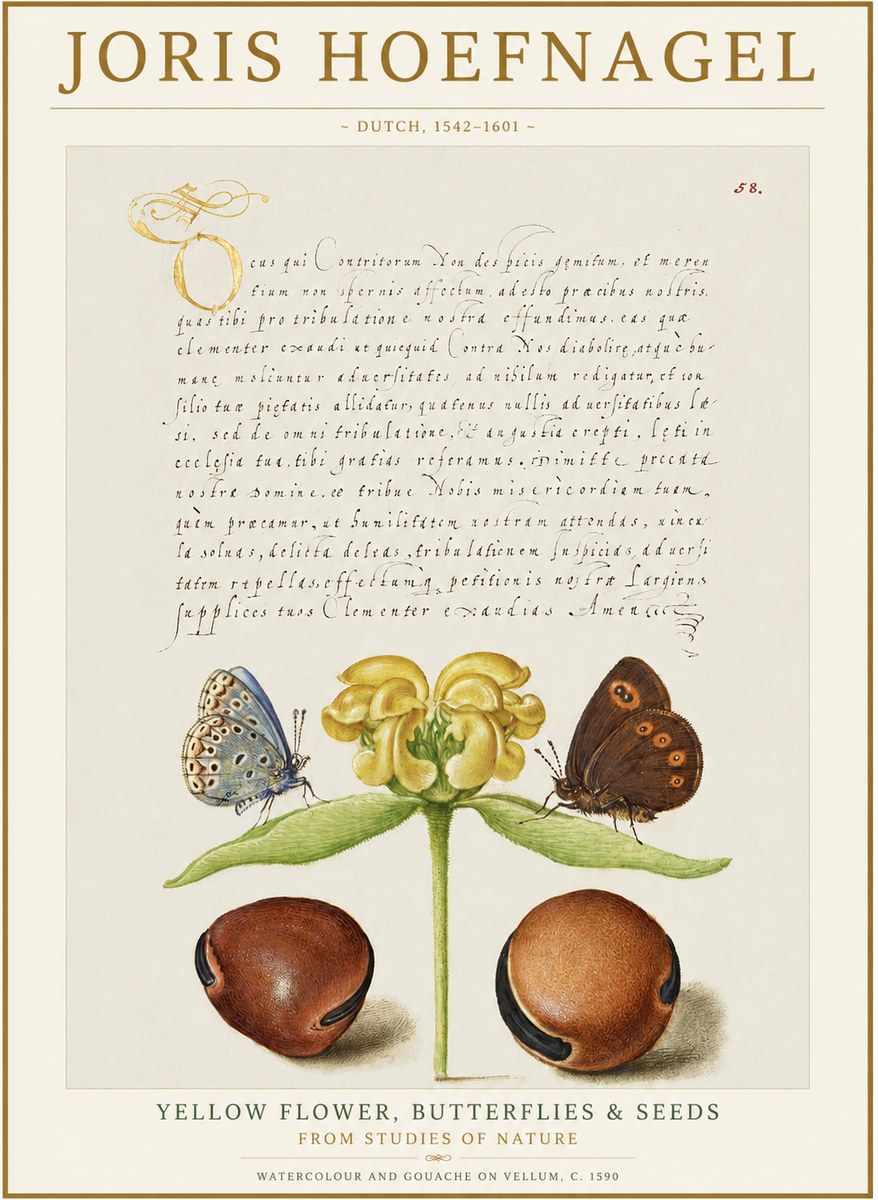 JORIS HOEFNAGEL
~ DUTCH, 1542–1601 ~
58.
Ocus qui Contritorum Non despicis gemitum, et meren
tium non spernis affectum, adesto præcibus nostris,
quas tibi pro tribulatione nostra effundimus. eas quæ
clementer exaudi ut quicquid Contra Nos diabolice, atque hu-
mane moliuntur adversitates, ad nihilum redigatur, et con
silio tuæ pietatis allidatur, quatenus nullis adversitatibus læ-
si. sed de omni tribulatione, & angustia erepti, leti in
ecclesia tua, tibi gratias referamus. Dimitte peccata
nostra Domine. et tribue Nobis misericordiam tuam,
quem præcamur, ut humilitatem nostram attendas, vincu
la soluas, delicta deleas, tribulationem Inspicias, adversi
tatem repellas, effectumq petitionis nostræ Largiens
supplices tuos Clementer exaudias Amen
YELLOW FLOWER, BUTTERFLIES & SEEDS
FROM STUDIES OF NATURE
WATERCOLOUR AND GOUACHE ON VELLUM, C. 1590